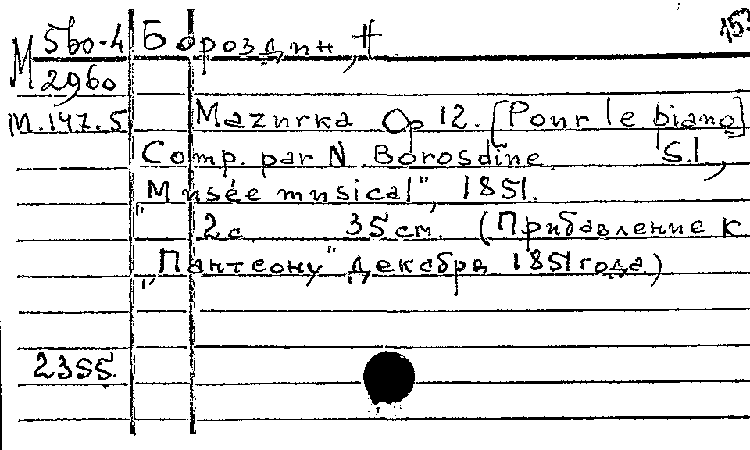 М 560-4 Бороздин, Н
2960
М.147.5 Mazurka Op 12. [Pour le piano]
Comp. par N. Borosdine S.l,
"Musée musical", 1851.
2 с. 35 см. (Прибавление к
"Пантеону" декабрь 1851 года)
2355.